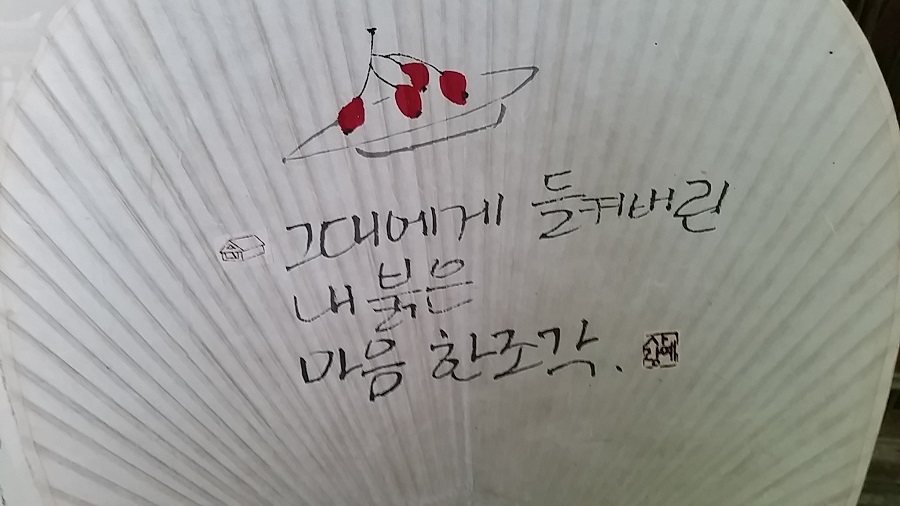 그대에게 들켜버린
내 붉은
마음 한조각.